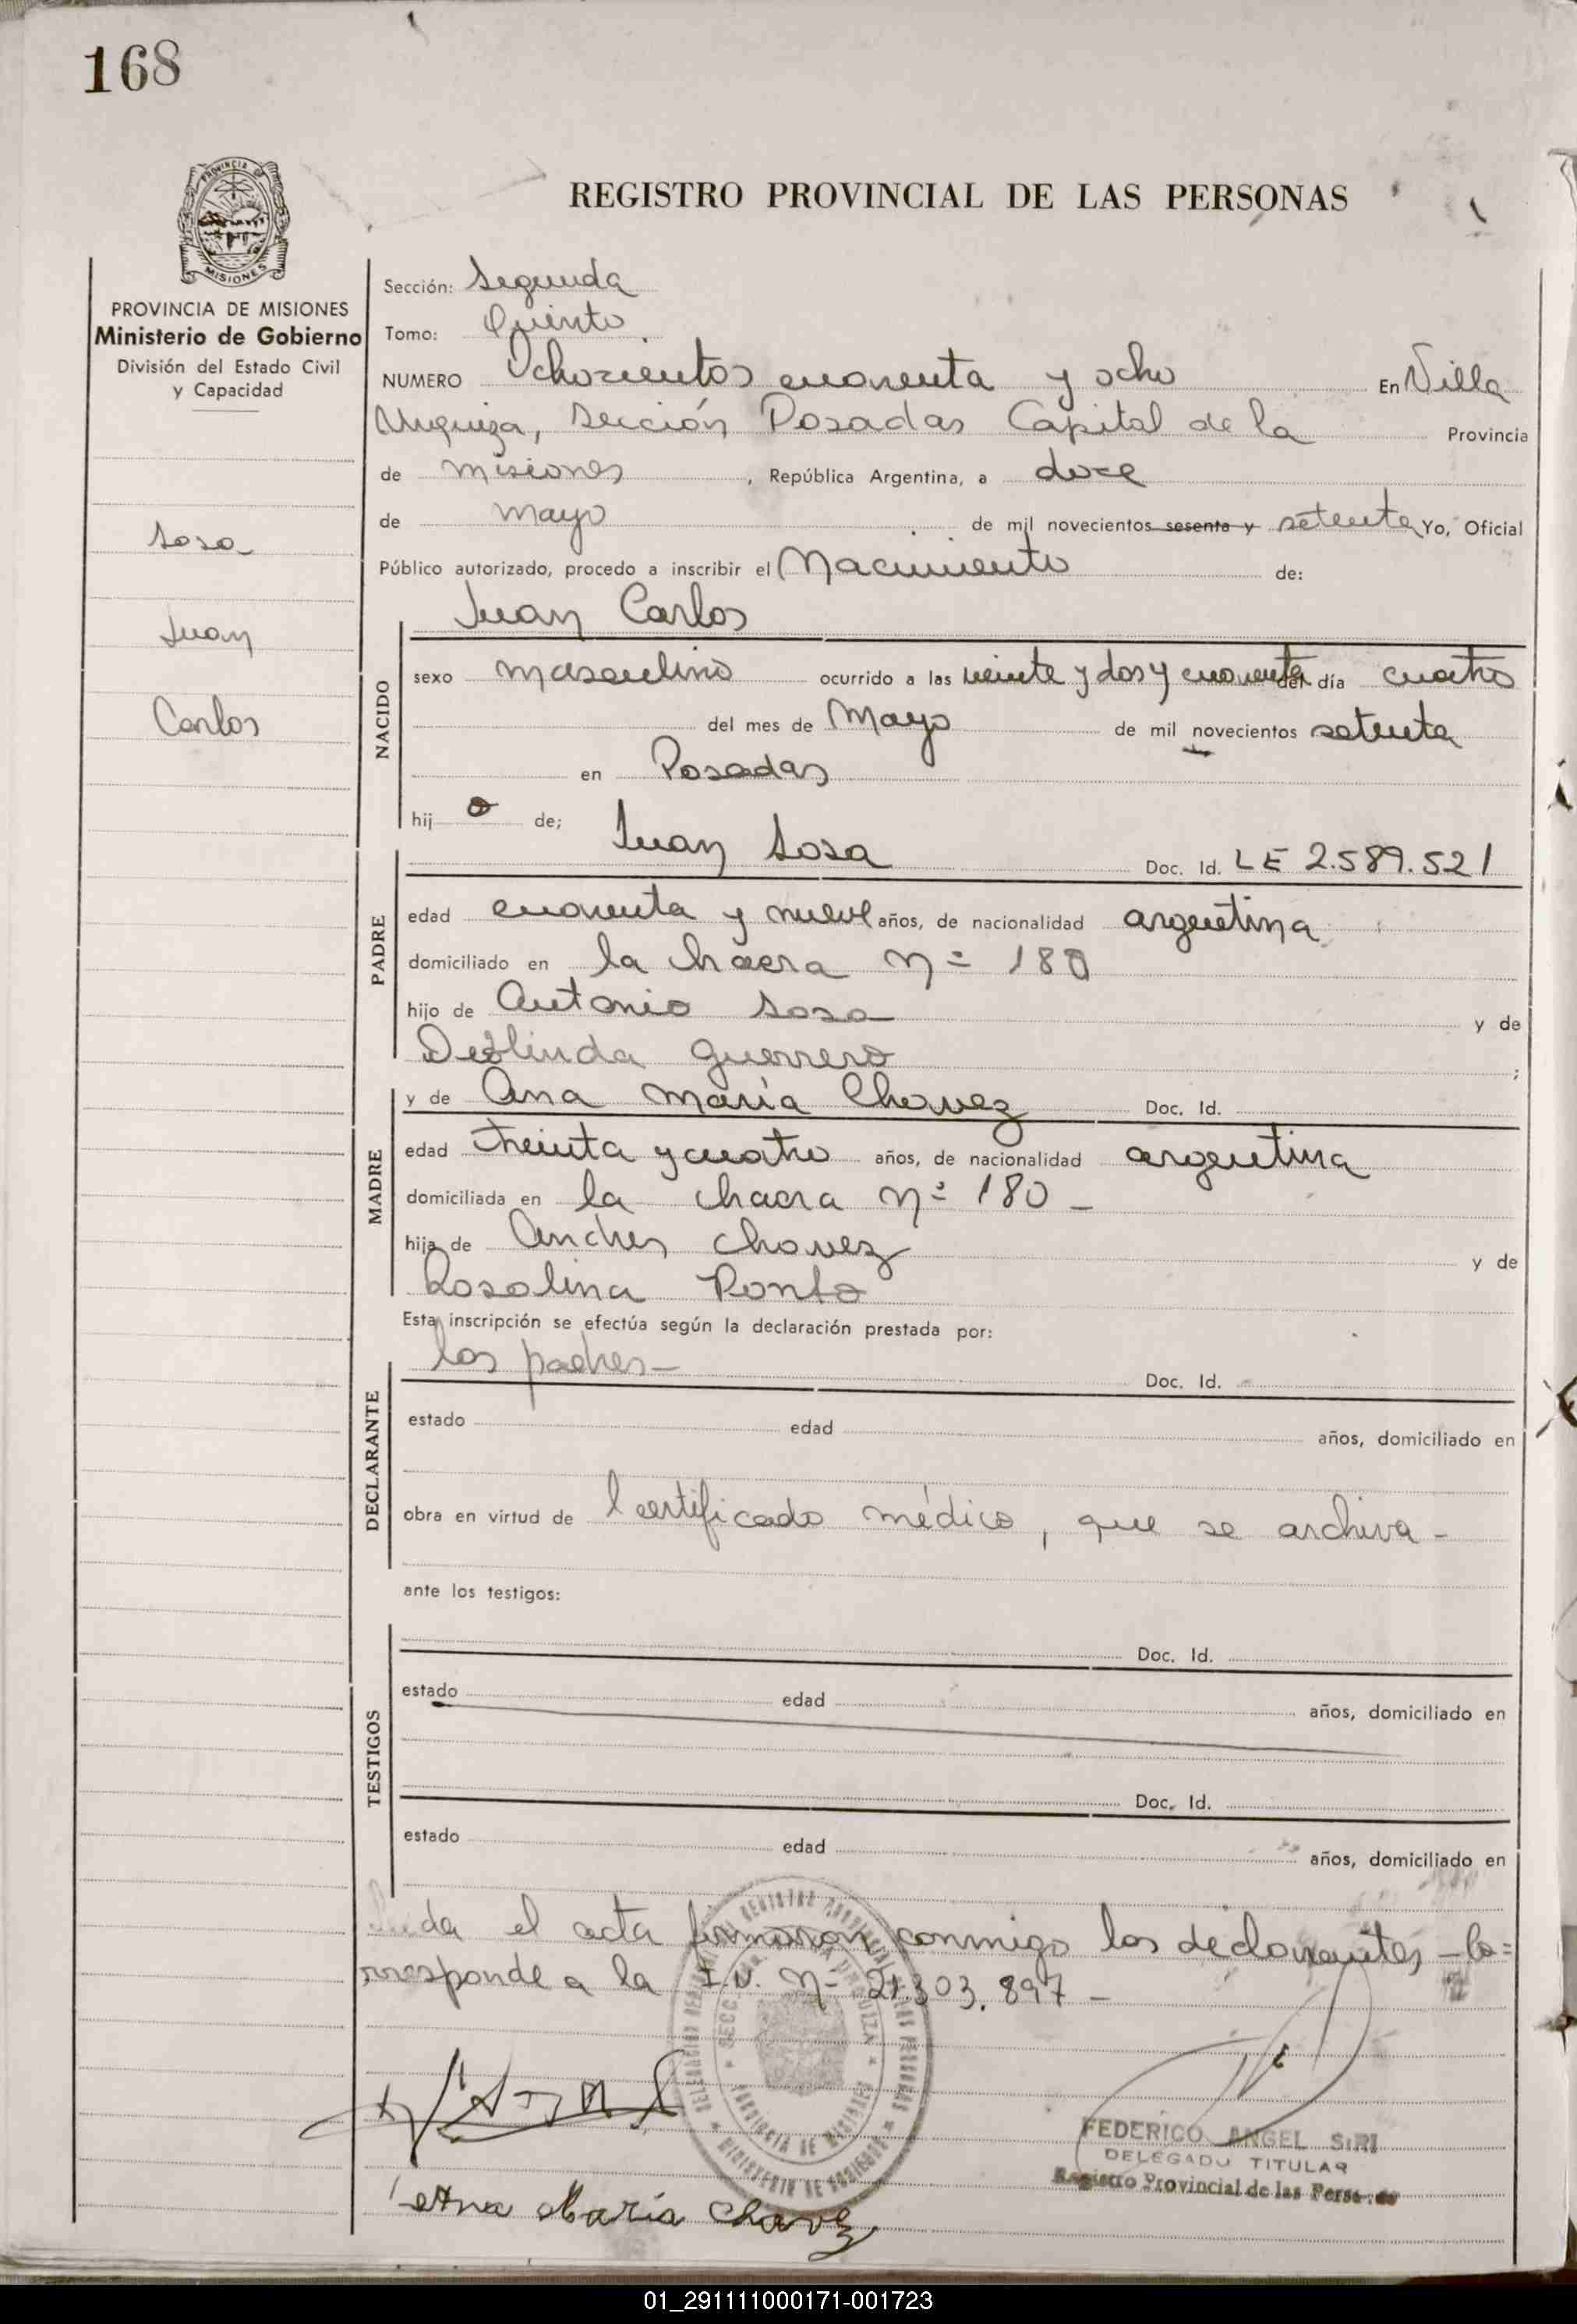 168
PROVINCIA DE
MISIONES
REGISTRO PROVINCIAL DE LAS PERSONAS
PROVINCIA DE MISIONES
Ministerio de Gobierno
División del Estado Civil
y Capacidad
Sosa
Juan
Carlos
Sección: Segunda
Tomo: Quinto
NUMERO Ochocientos cuarenta y ocho En Villa
Urquiza, sección Posadas Capital de la Provincia
de Misiones, República Argentina, a doce
de mayo de mil novecientos sesenta y setenta Yo, Oficial
Público autorizado, procedo a inscribir el Nacimiento de:
Juan Carlos
NACIDO
sexo masculino ocurrido a las veinte y dos y cuarenta del día cuatro
del mes de Mayo de mil novecientos setenta
en Posadas
hij o de;
Juan Sosa Doc. Id. LE 2.589.521
PADRE
edad cuarenta y nueve años, de nacionalidad argentina
domiciliado en la chacra nº 180
hijo de Antonio Sosa y de
Deolinda Guerrero ;
y de Ana María Chavez Doc. Id.
MADRE
edad treinta y cuatro años, de nacionalidad argentina
domiciliada en la chacra nº 180 -
hija de Andres Chavez y de
Rosalina Ponto
Esta inscripción se efectúa según la declaración prestada por:
los padres - Doc. Id.
DECLARANTE
estado edad años, domiciliado en
obra en virtud de certificado médico, que se archiva -
ante los testigos:
Doc. Id.
TESTIGOS
estado edad años, domiciliado en
Doc. Id.
estado edad años, domiciliado en
Leida el acta firmaron conmigo los declarantes - Co=
rresponde a la I.N. Nº 21.303.897 -
FEDERICO ANGEL SIRI
DELEGADO TITULAR
Registro Provincial de las Personas
Ana María Chavez
01_291111000171-001723